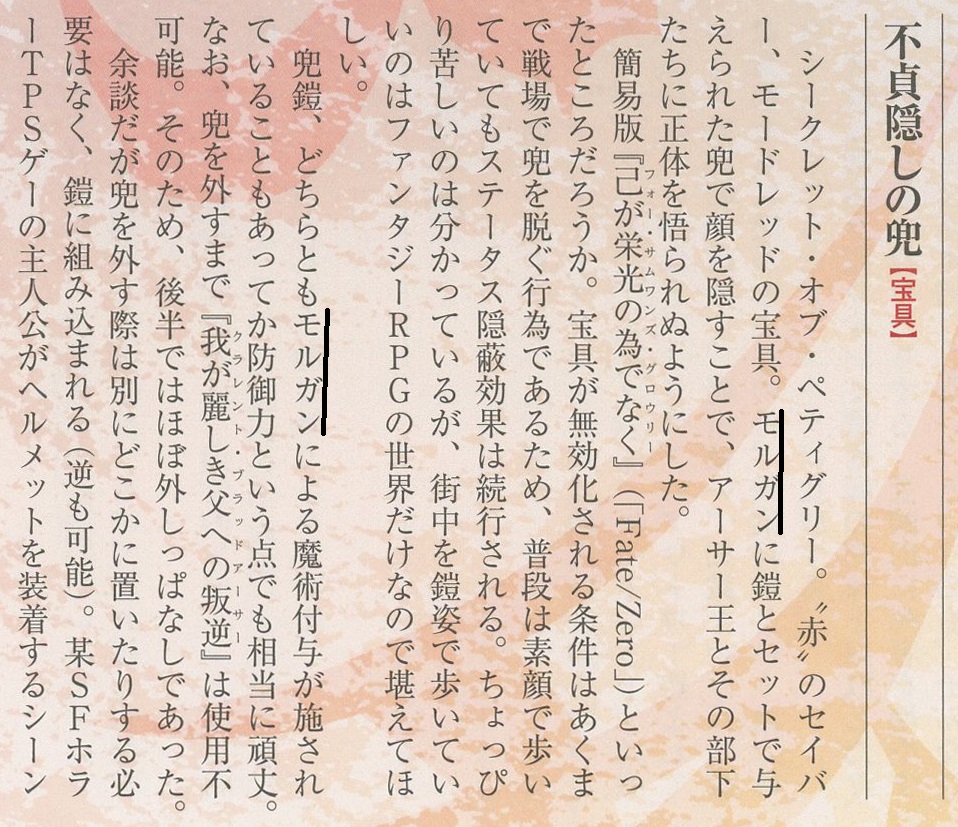 不貞隠しの兜【宝具】
シークレット・オブ・ペティグリー。〝赤〟のセイバ
ー、モードレッドの宝具。モルガンに鎧とセットで与
えられた兜で顔を隠すことで、アーサー王とその部下
たちに正体を悟られぬようにした。
簡易版『己が栄光の為でなく』（「Fate/Zero」）といっ
フォー・サムワンズ・グロウリー
たところだろうか。宝具が無効化される条件はあくま
で戦場で兜を脱ぐ行為であるため、普段は素顔で歩い
ていてもステータス隠蔽効果は続行される。ちょっぴ
り苦しいのは分かっているが、街中を鎧姿で歩いてい
いのはファンタジーRPGの世界だけなので堪えてほ
しい。
兜鎧、どちらともモルガンによる魔術付与が施され
ていることもあってか防御力という点でも相当に頑丈。
なお、兜を外すまで『我が麗しき父への叛逆』は使用不
クラレント・ブラッドアーサー
可能。そのため、後半ではほぼ外しっぱなしであった。
余談だが兜を外す際は別にどこかに置いたりする必
要はなく、鎧に組み込まれる（逆も可能）。某SFホラ
ーTPSゲーの主人公がヘルメットを装着するシーン